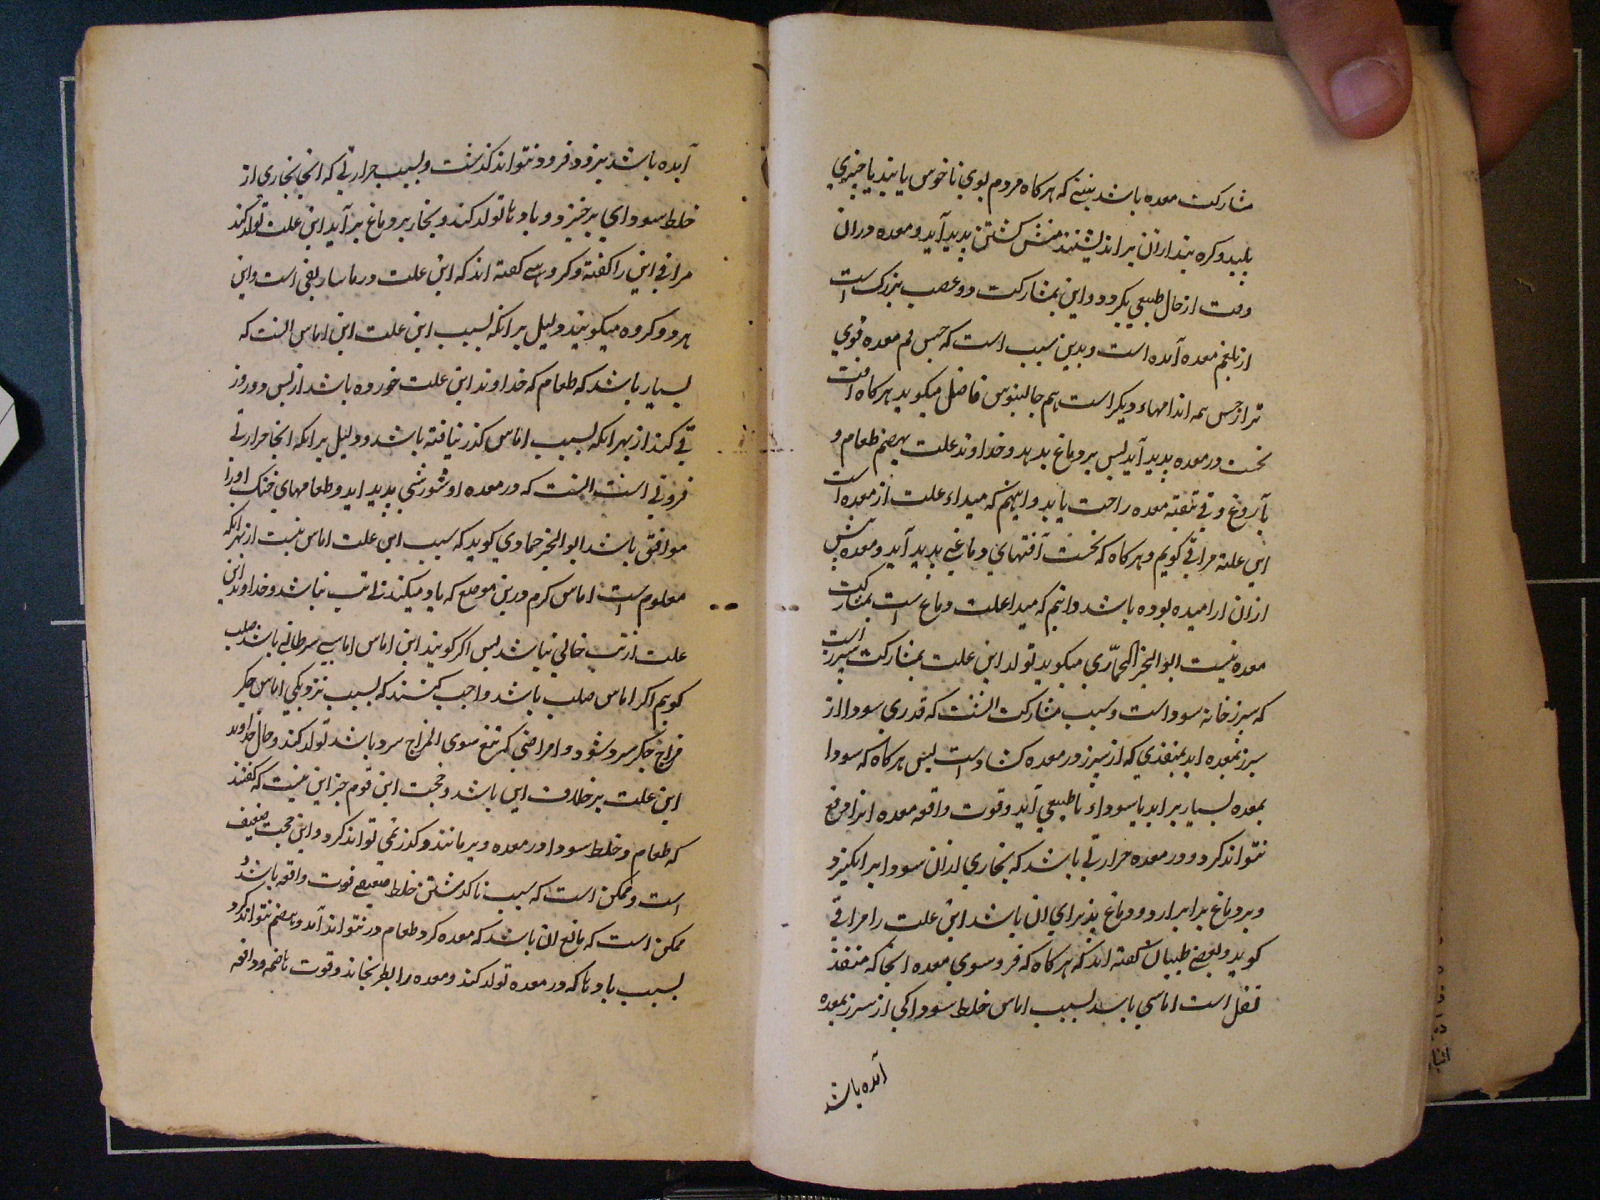 مشارکت معده باشد بینی که هرکاه مردم بوی ناخوش یابند یا چیزی
پلید و کره بیند از ان براندیشند منش کشتن پدید آید و معده دران
وقت از حال طبیعی بکردد و این بمشارکت دو عصب بزرک است
که بفم معده آمده است و بدین سبب است که حس فم معده قوی
تر از حس همه اندامهاء دیکر است هم جالینوس فاضل میکوید هرکاه افت
نخست در معده پدید آید پس بر دماغ بدهد و خداوند علت بهضم طعام و
بآروغ و قی تنقیه معده راحت یابد دانیم که مبداء علت از معده است
این علة مراقی کویم و هرکاه که نخست آفتهای دماغی پدید آید و معده پیش
ازان ارامیده بوده باشد دانیم که مبدا علت دماغ است بمشارکت
معده نیست ابو الخیر الخمّاری میکوید تولد این علت بمشارکت سپرز است
که سپرز خانه سودا است و سبب مشارکت انست که قدری سودا از
سپرز بمعده اید بمنفذی که از سپرز در معده کشاده است پس هرکاه که سودا
بمعده بسیار براید یا سوداء نا طبیعی آید و قوت دافعه معده انرا دفع
نتواند کرد و در معده حرارتی باشد که بخاری ازان سودا برانکیزد
و بر دماغ برابر ارد و دماغ پذیرای ان باشد این علت را مراقی
کویند و بعضی طبیبان کفته اند که هرکاه که فروسوی معده انجا که منفذ
ثفل است اماسی باشد بسبب اماس خلط سودا کی از سپرز بمعده
آمده باشد
آمده باشد بیزد و فرود نتواند کذشت و بسبب حرارتی که انجا بخاری از
خلط سودای برخیزد و بادها تولد کند و بخار بر دماغ برآید این علت تولد کند
مراقی این را کفته و کروهی کفته اند که این علت در ماساریقی است و این
هر دو کروه میکویند دلیل برانکه بسبب این علت این اماس انست که
بسیار باشد که طعام که خداوند این علت خورده باشد از پس دو روز
قی کند از بهر انکه بسبب اماس کذر نیافته باشد و دلیل برانکه انجا حرارتی
فزونی است انست که در معده او شورشی پدید اید و طعامهای خنک اورا
موافق باشد ابو الخیر خماری کوید که سبب این علت اماس نیست از بهر انکه
معلوم است اماس کرم درین موضع که یاد میکنند از تب نباشد و خداوند این
علت از تب خالی نباشد پس اکر کویند این اماس اماسی سرطانی باشد صلب
کویم اکر اماس صلب باشد واجب کند که بسبب نزدیکی اماس جکر
مزاج جکر سرد شود و امراضی که تبع سوی المزاج سرد باشد تولد کند و حال خداوند
این علت بر خلاف این باشد و حجت این قوم جز این نیست که کفتند
که طعام و خلط سودا در معده دیر ماند و کذر نمی تواند کرد و این حجت ضعیف
است و ممکن است که سبب ناکذشتن خلط ضعیفی قوت دافعه باشد و
ممکن است که مانع ان باشد که معده کرد طعام در نتواند آمد و هضم نتواند کرد
بسبب بادها که در معده تولد کند و معده را بطرنجاند و قوت هاضمه و دافعه